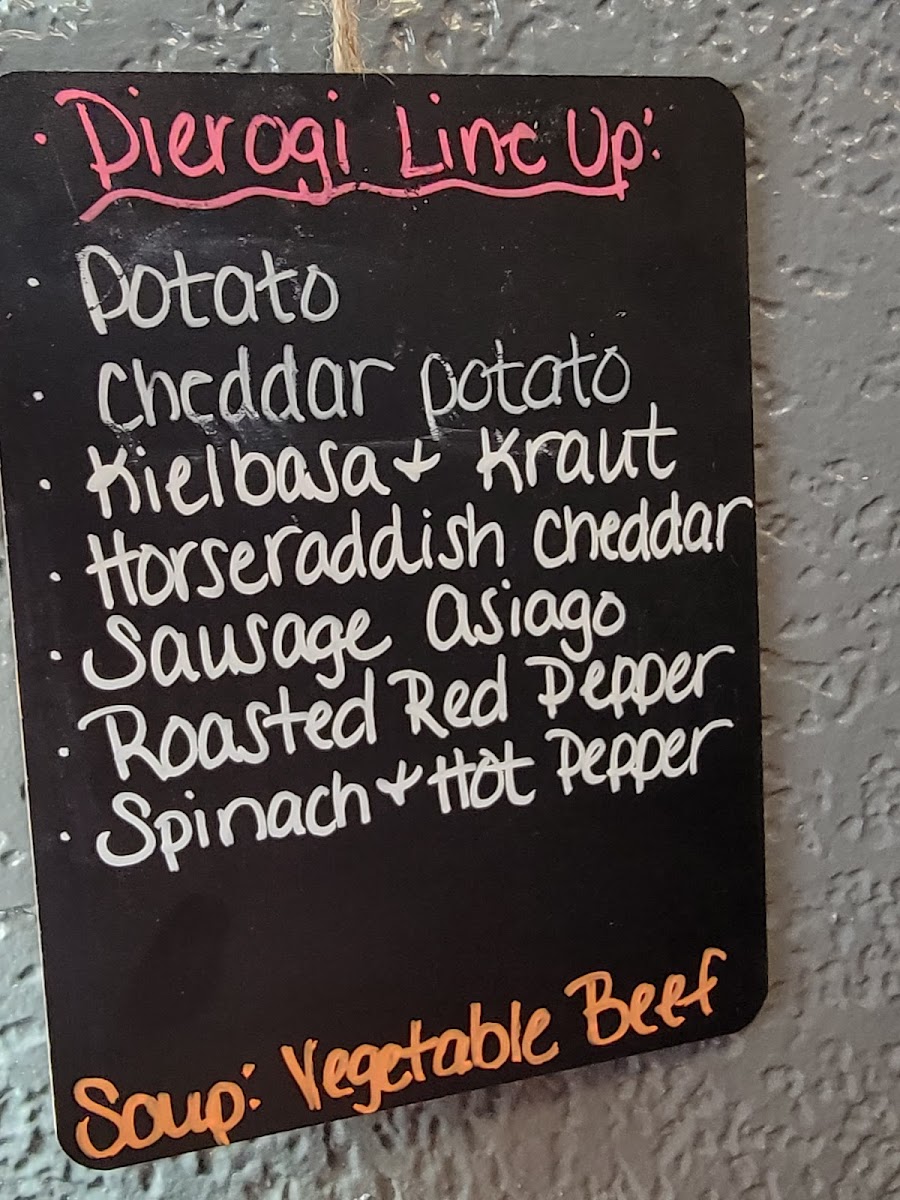 · Pierogi Line Up:
· Potato
· Cheddar potato
· Kielbasa + Kraut
· Horseraddish cheddar
· Sausage Asiago
· Roasted Red Pepper
· Spinach + Hot Pepper
Soup: Vegetable Beef